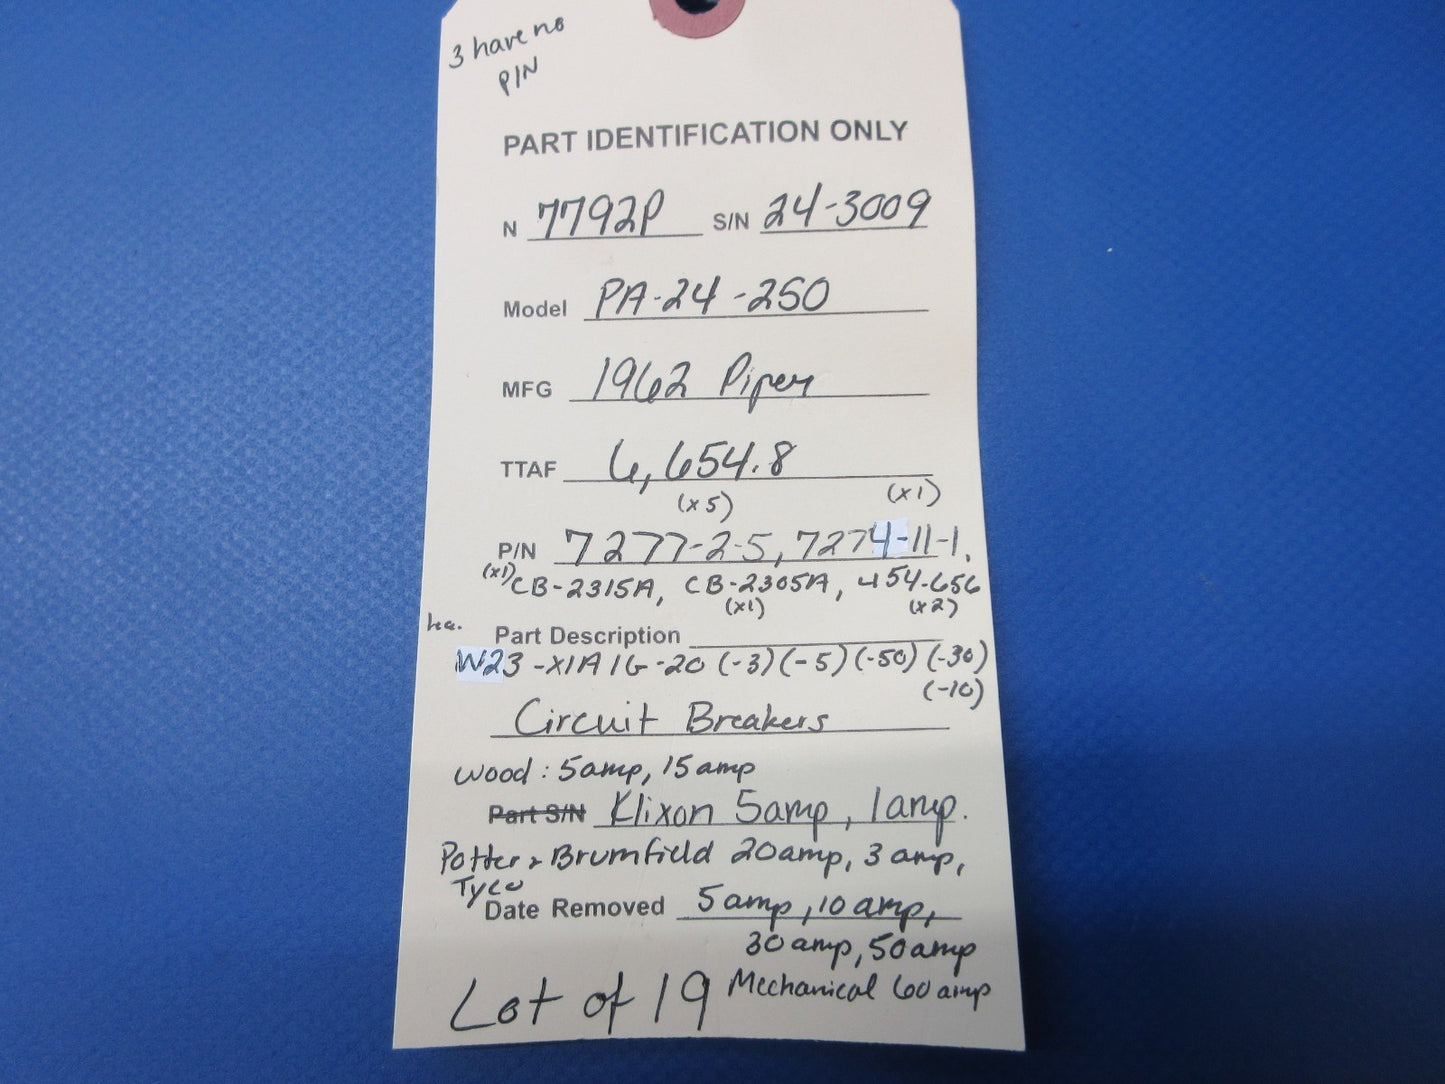 3 have no
P/N
PART IDENTIFICATION ONLY
N 7792P S/N 24-3009
Model PA-24-250
MFG 1962 Piper
TTAF 6,654.8
(x5) (x1)
P/N 7277-2-5, 7274-11-1.
(x1) CB-2315A, CB-2305A, 454-656
(x1) (x2)
1ea. Part Description
W23-X1A1G-20 (-3)(-5)(-50)(-30)
(-10)
Circuit Breakers
Wood: 5amp, 15amp
Part S/N Klixon 5amp, 1amp.
Potter & Brumfield 20amp, 3amp,
Tyco
Date Removed 5amp, 10amp,
30amp, 50amp
Lot of 19 Mechanical 60amp